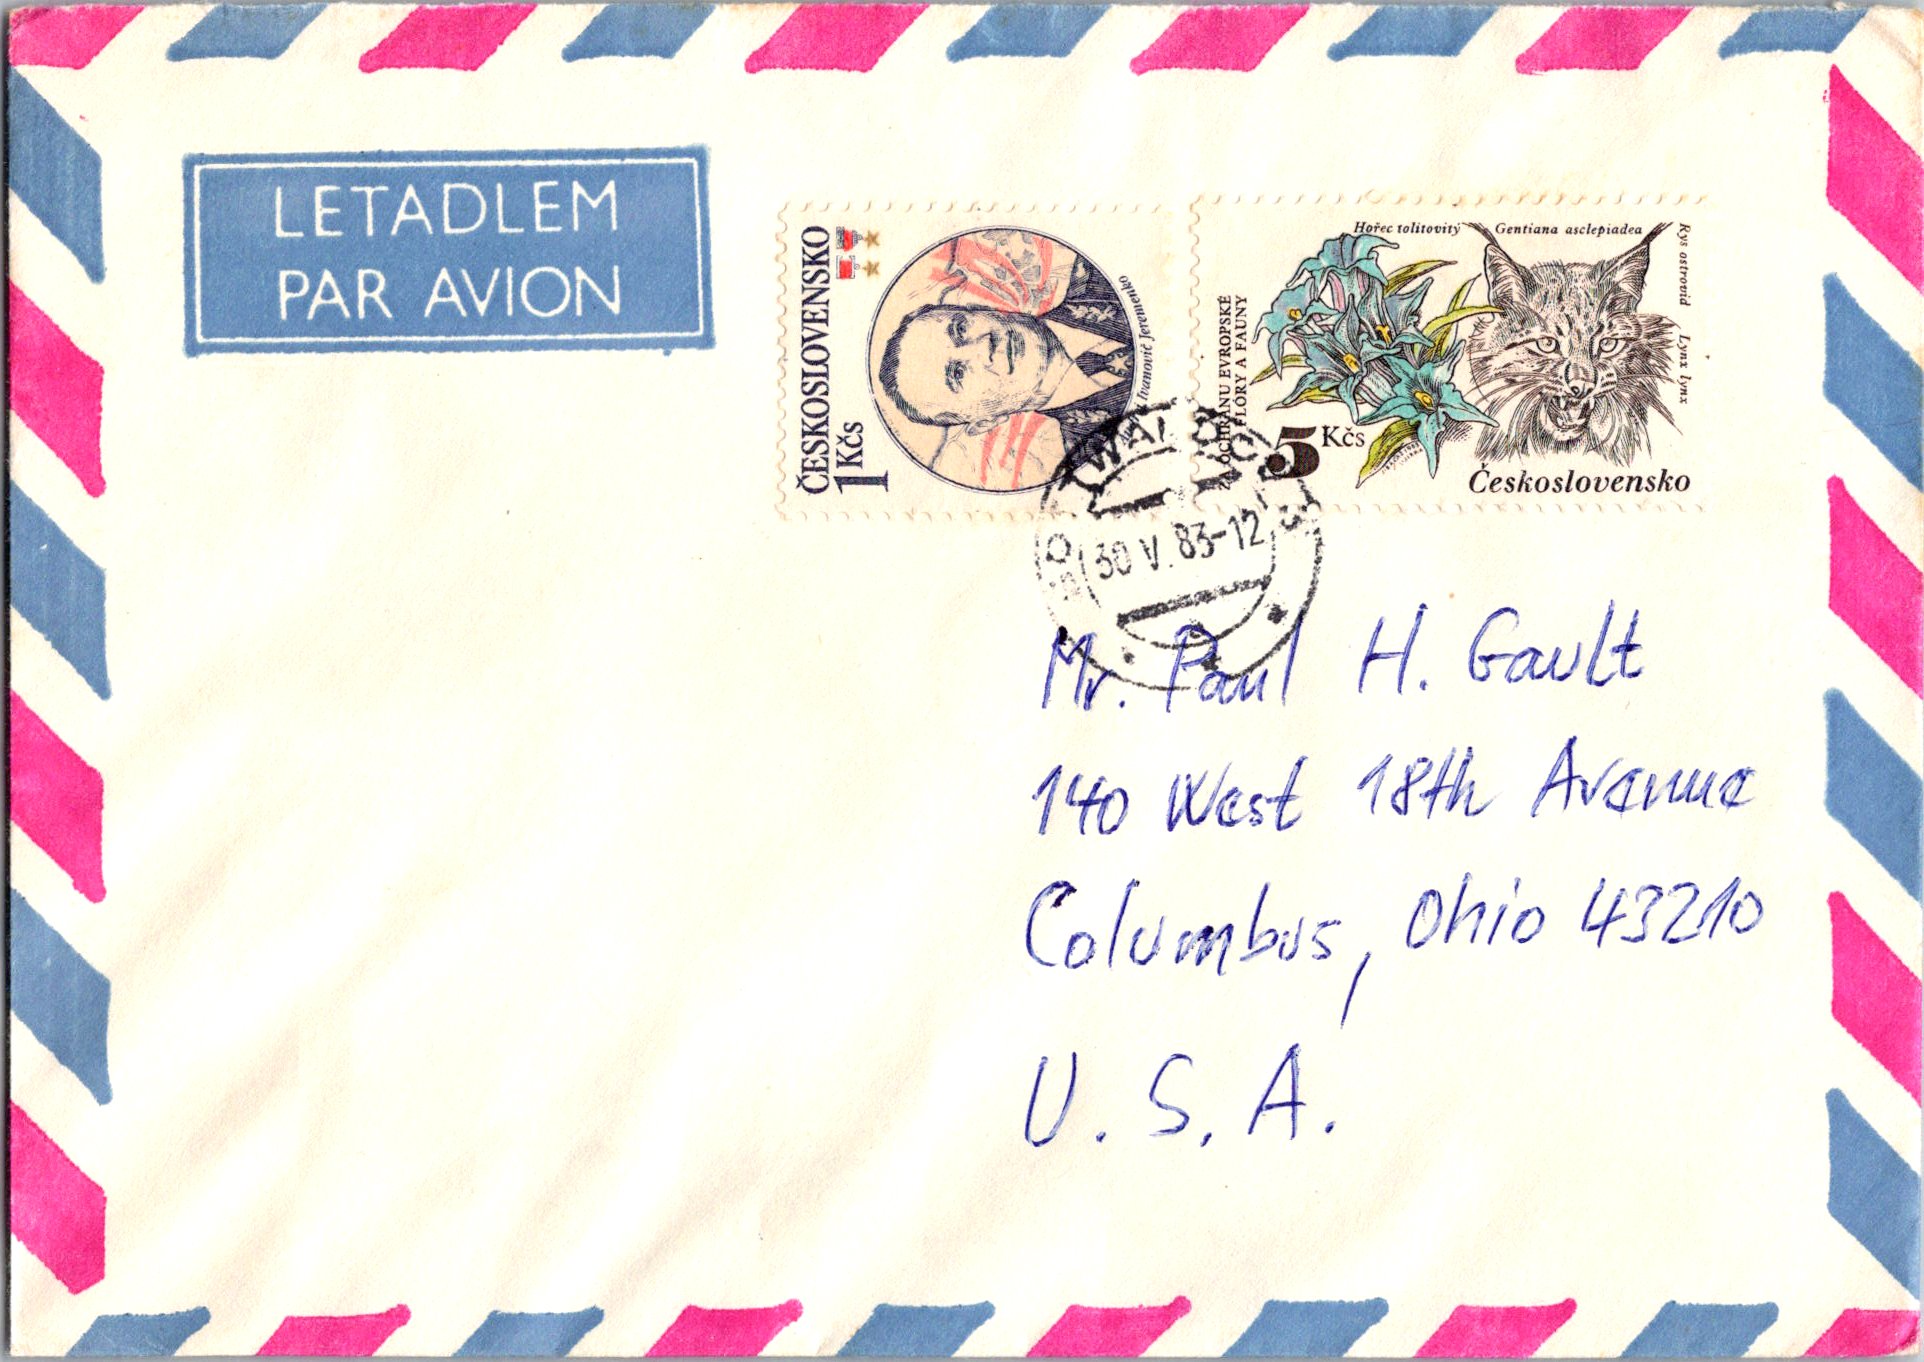 LETADLEM
PAR AVION
ČESKOSLOVENSKO
1 Kčs
Ivanovič Jeremenko
Hořec tolitovitý
Gentiana asclepiadea
Rys ostrovid
Lynx lynx
ZA OCHRANU EVROPSKÉ
FLÓRY A FAUNY
5 Kčs
Československo
30 V. 83-12
Mr. Paul H. Gault
140 West 18th Avenue
Columbus, Ohio 43210
U. S. A.